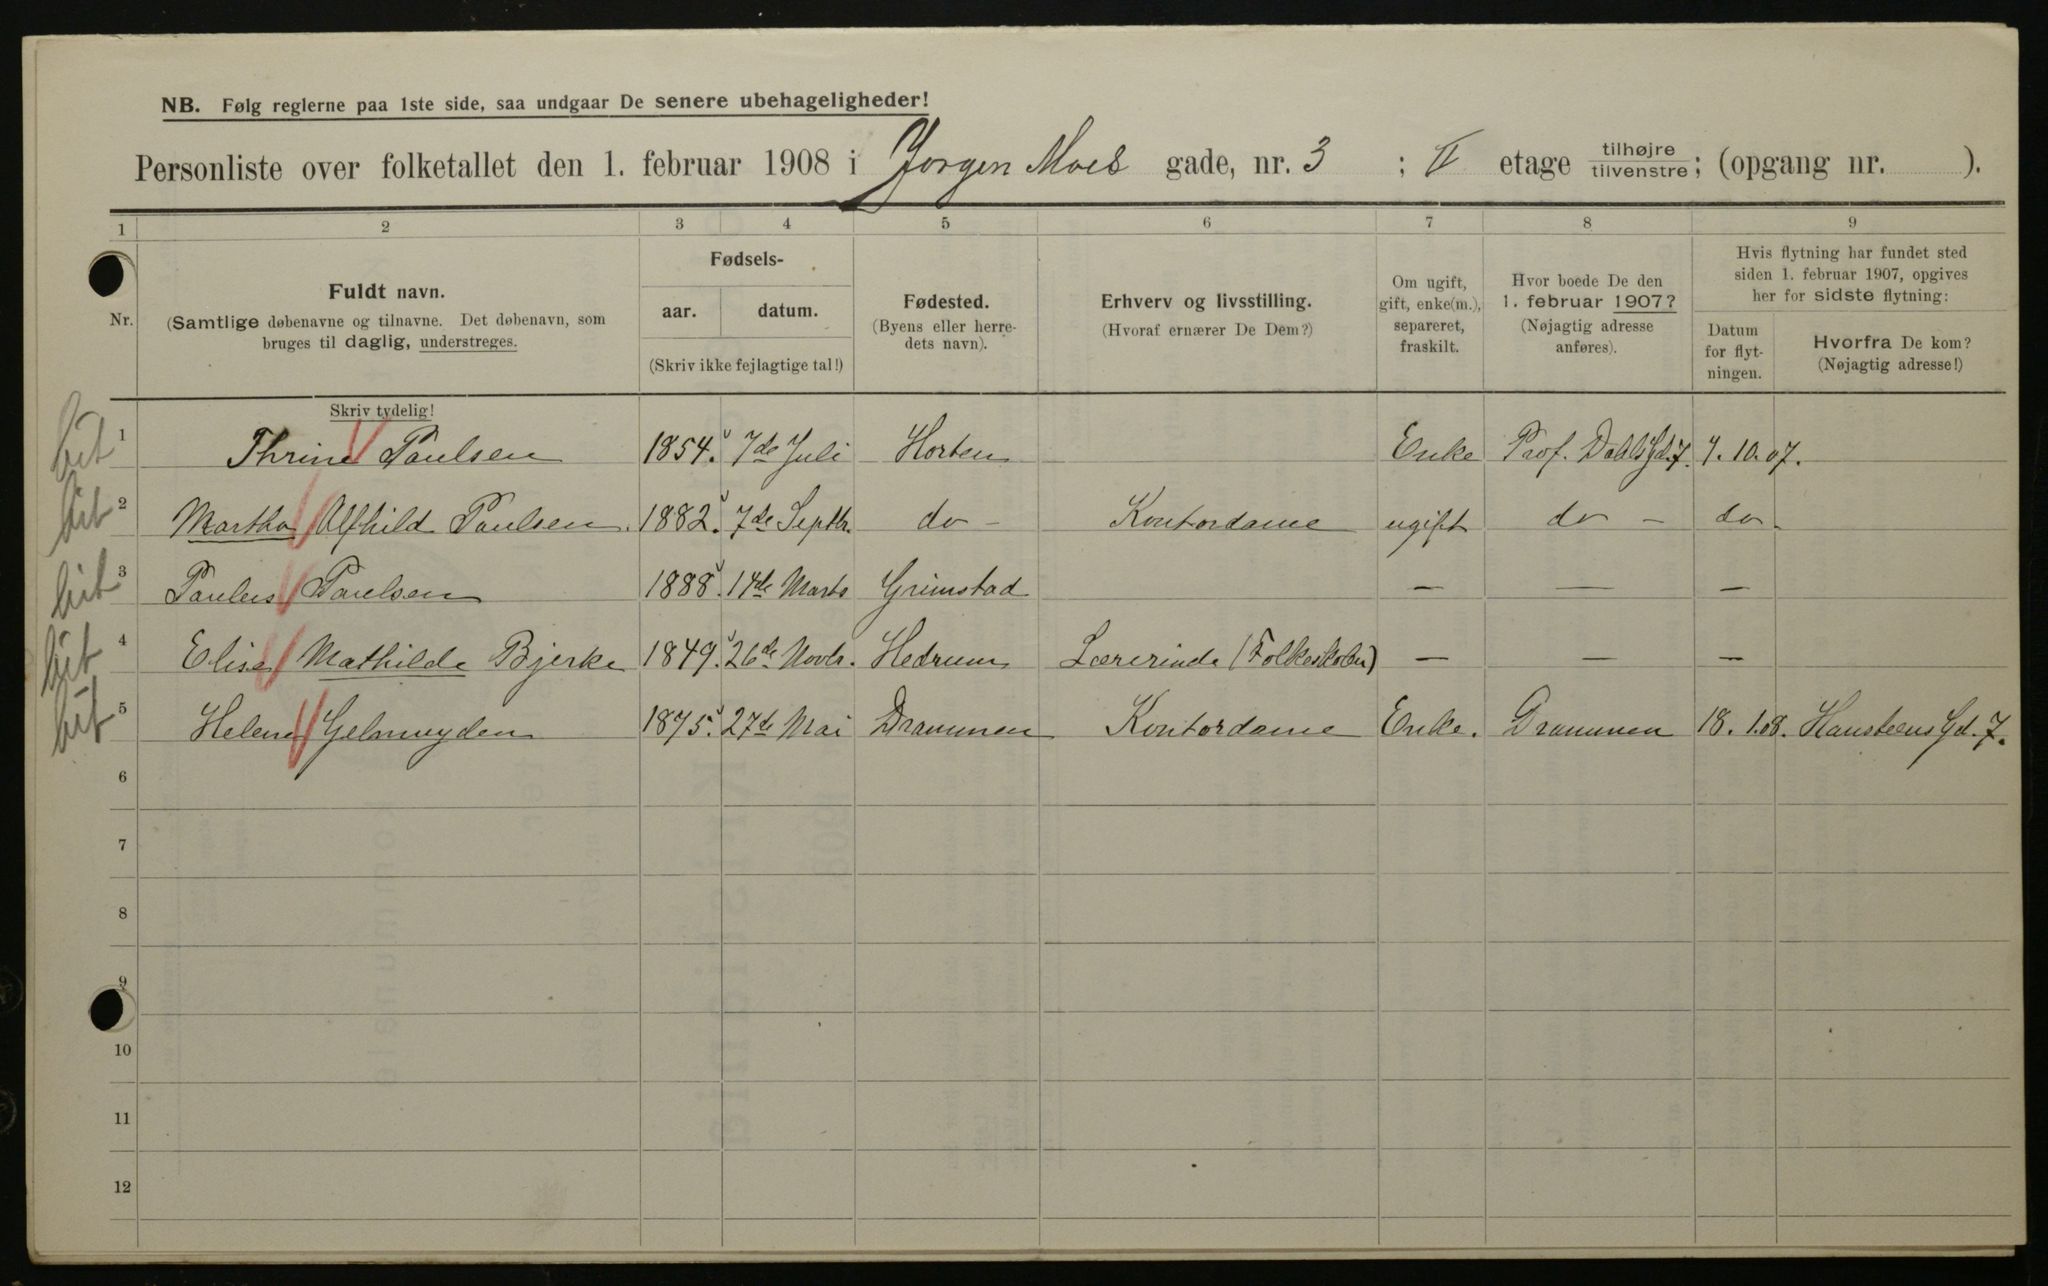 NB. Følg reglerne paa 1ste side, saa undgaar De senere ubehageligheder!
Personliste over folketallet den 1. februar 1908 i Jørgen Moes gade, nr. 3 ; II etage tilhøjre/tilvenstre; (opgang nr. ).
1 2 3 4 5 6 7 8 9
Nr.
Fuldt navn.
(Samtlige døbenavne og tilnavne. Det døbenavn, som
bruges til daglig, understreges.
Skriv tydelig!
Fødsels-
aar. datum.
(Skriv ikke fejlagtige tal!)
Fødested.
(Byens eller herre-
dets navn).
Erhverv og livsstilling.
(Hvoraf ernærer De Dem?)
Om ugift,
gift, enke(m.),
separeret,
fraskilt.
Hvor boede De den
1. februar 1907?
(Nøjagtig adresse
anføres).
Hvis flytning har fundet sted
siden 1. februar 1907, opgives
her for sidste flytning:
Datum
for flyt-
ningen.
Hvorfra De kom?
(Nøjagtig adresse!)
bit 1 Thrine Paulsen 1854. 7de Juli Horten Enke Prof. Dahls Gd. 7. 7. 10. 07.
bit 2 Martha Alfhild Paulsen. 1882. 7de Septbr. do - Kontordame ugift do - do -
bit 3 Paulus Paulsen 1888. 14de Marts Grimstad — — —
bit 4 Elise Mathilde Bjerke 1849. 26de Novbr. Hedrum Lærerinde (Folkeskolen) — — —
bit 5 Helene Gelmuyden 1875. 27de Mai Drammen Kontordame Enke. Drammen 18. 1. 08. Hansteens Gd. 7.
6
7
8
9
10
11
12